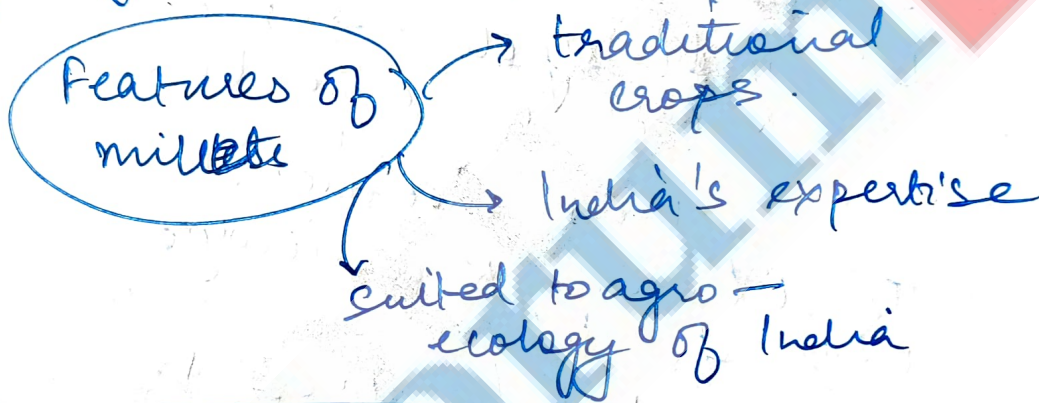 Features of
millets
traditional
crops.
India's expertise
suited to agro-
ecology of India